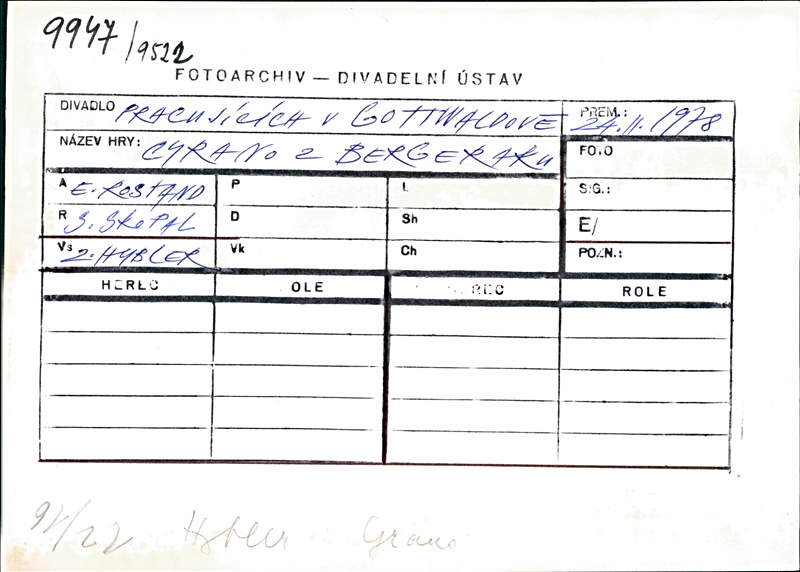 9947/9522
FOTOARCHIV — DIVADELNÍ ÚSTAV
DIVADLO PRACUJÍCÍCH V GOTTWALDOVĚ PREM.: 24.11.1978
NÁZEV HRY: CYRANO Z BERGERAKU FOTO
A E. ROSTAND P L SIG.:
R S. SKOPAL D Sh E/
Vs Z. HYBLER Vk Ch POZN.:
HEREC OLE REC ROLE
92/22 Hybler